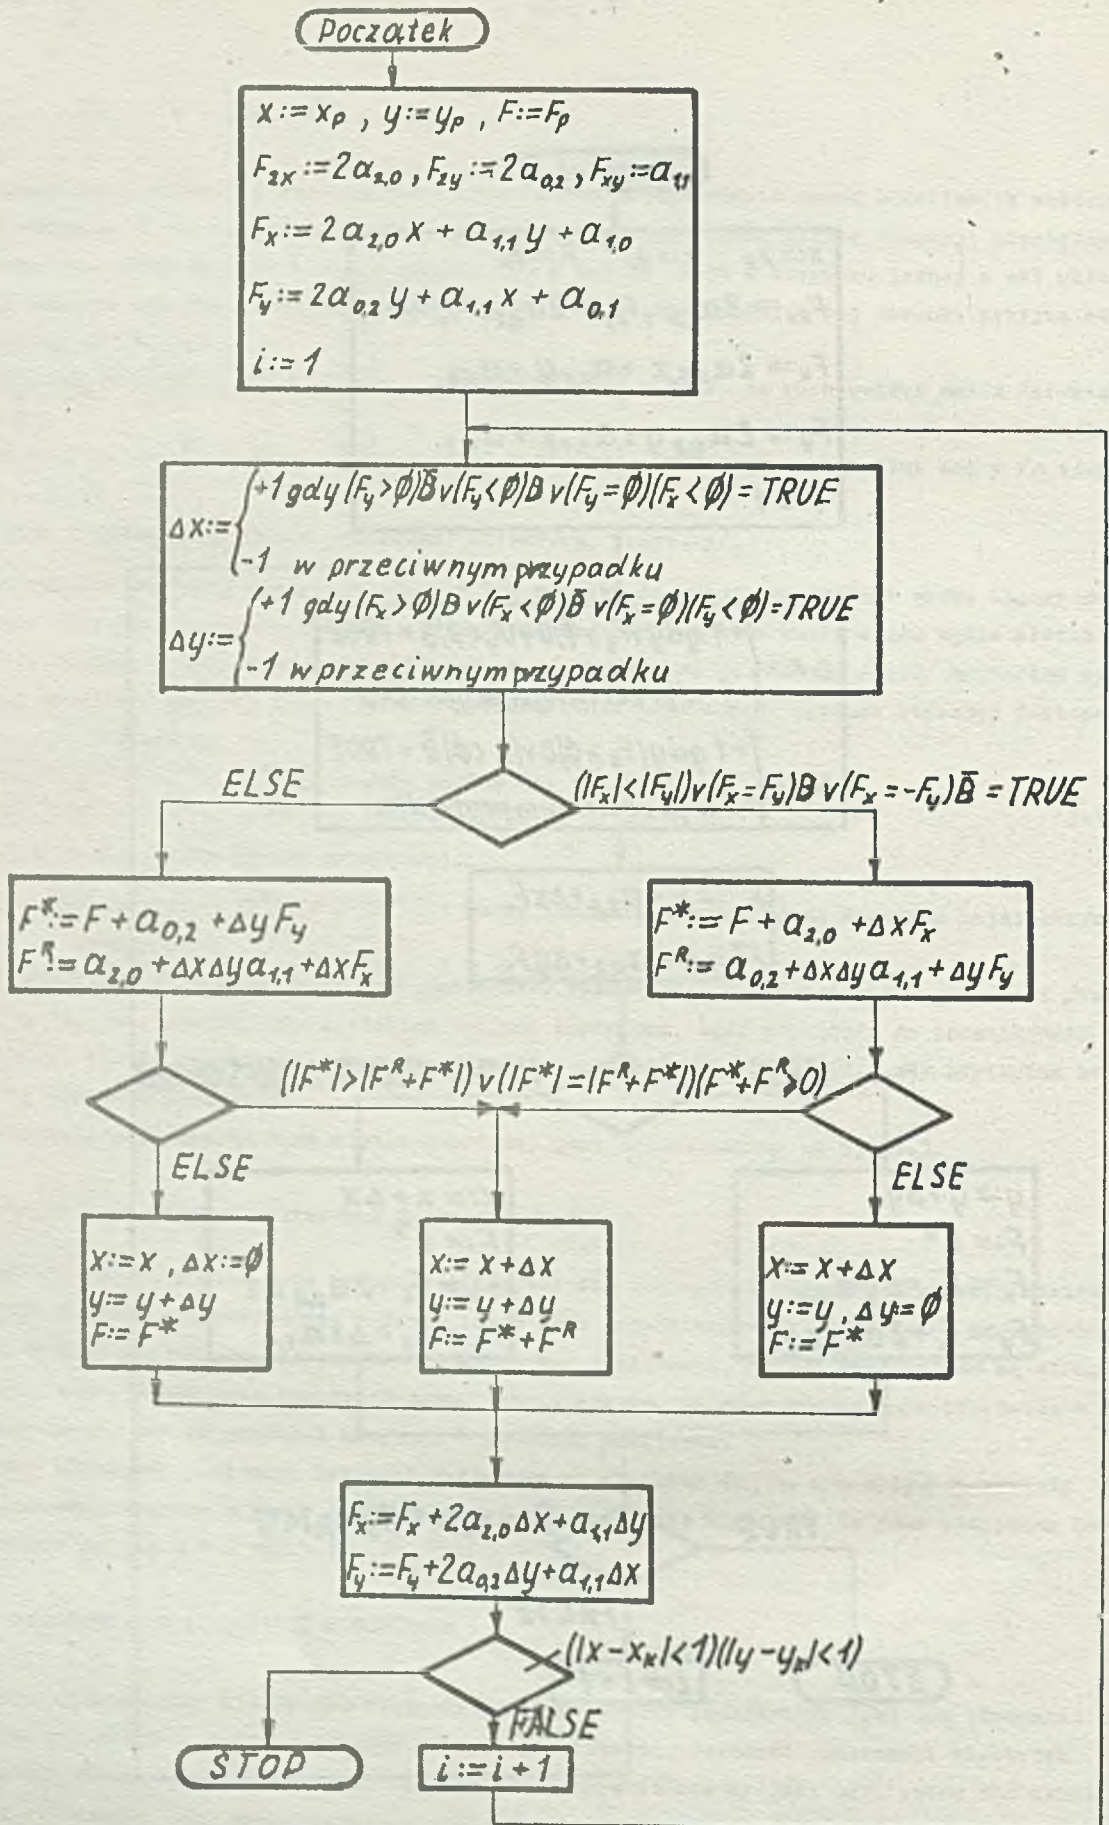 Początek
x:=xₚ , y:=yₚ , F:=Fₚ
F₂ₓ:=2a₂,₀ , F₂y:=2a₀,₂ , Fxy:=a₁,₁
Fₓ:=2a₂,₀x + a₁,₁y + a₁,₀
Fy:=2a₀,₂y + a₁,₁x + a₀,₁
i:=1
Δx:= { +1 gdy (Fy>∅)B̄ v (Fy<∅)B v (Fy=∅)(Fx<∅) = TRUE
-1 w przeciwnym przypadku
Δy:= { +1 gdy (Fx>∅)B v (Fx<∅)B̄ v (Fx=∅)(Fy<∅) = TRUE
-1 w przeciwnym przypadku
ELSE
(|Fx|<|Fy|) v (Fx=Fy)B v (Fx=-Fy)B̄ = TRUE
F*:= F + a₀,₂ + ΔyFy
Fᴿ:= a₂,₀ + ΔxΔya₁,₁ + ΔxFx
F*:= F + a₂,₀ + ΔxFx
Fᴿ:= a₀,₂ + ΔxΔya₁,₁ + ΔyFy
(|F*|>|Fᴿ+F*|) v (|F*|=|Fᴿ+F*|)(F*+Fᴿ>0)
ELSE
ELSE
x:=x , Δx:=∅
y:=y+Δy
F:=F*
x:=x+Δx
y:=y+Δy
F:=F*+Fᴿ
x:=x+Δx
y:=y , Δy:=∅
F:=F*
Fx:=Fx+2a₂,₀Δx+a₁,₁Δy
Fy:=Fy+2a₀,₂Δy+a₁,₁Δx
(|x-xₖ|<1)(|y-yₖ|<1)
FALSE
STOP
i:=i+1